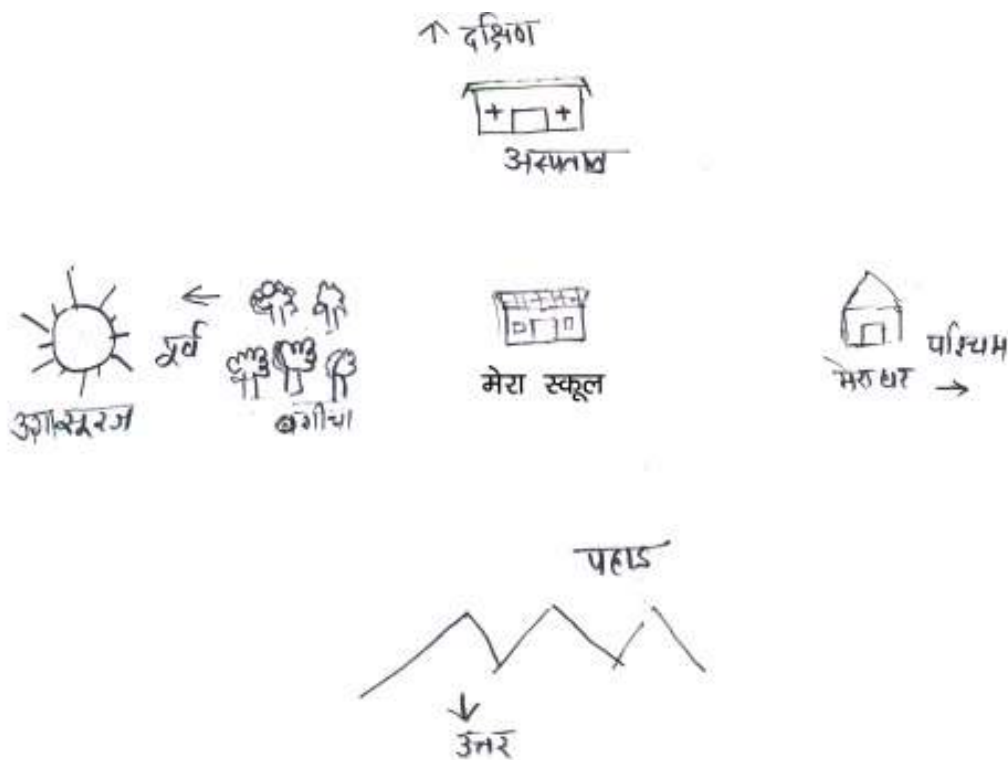 ↑ दक्षिण
अस्पताल
← पूर्व
उगा सूरज
बगीचा
मेरा स्कूल
मेरा घर
पश्चिम →
पहाड
↓ उत्तर